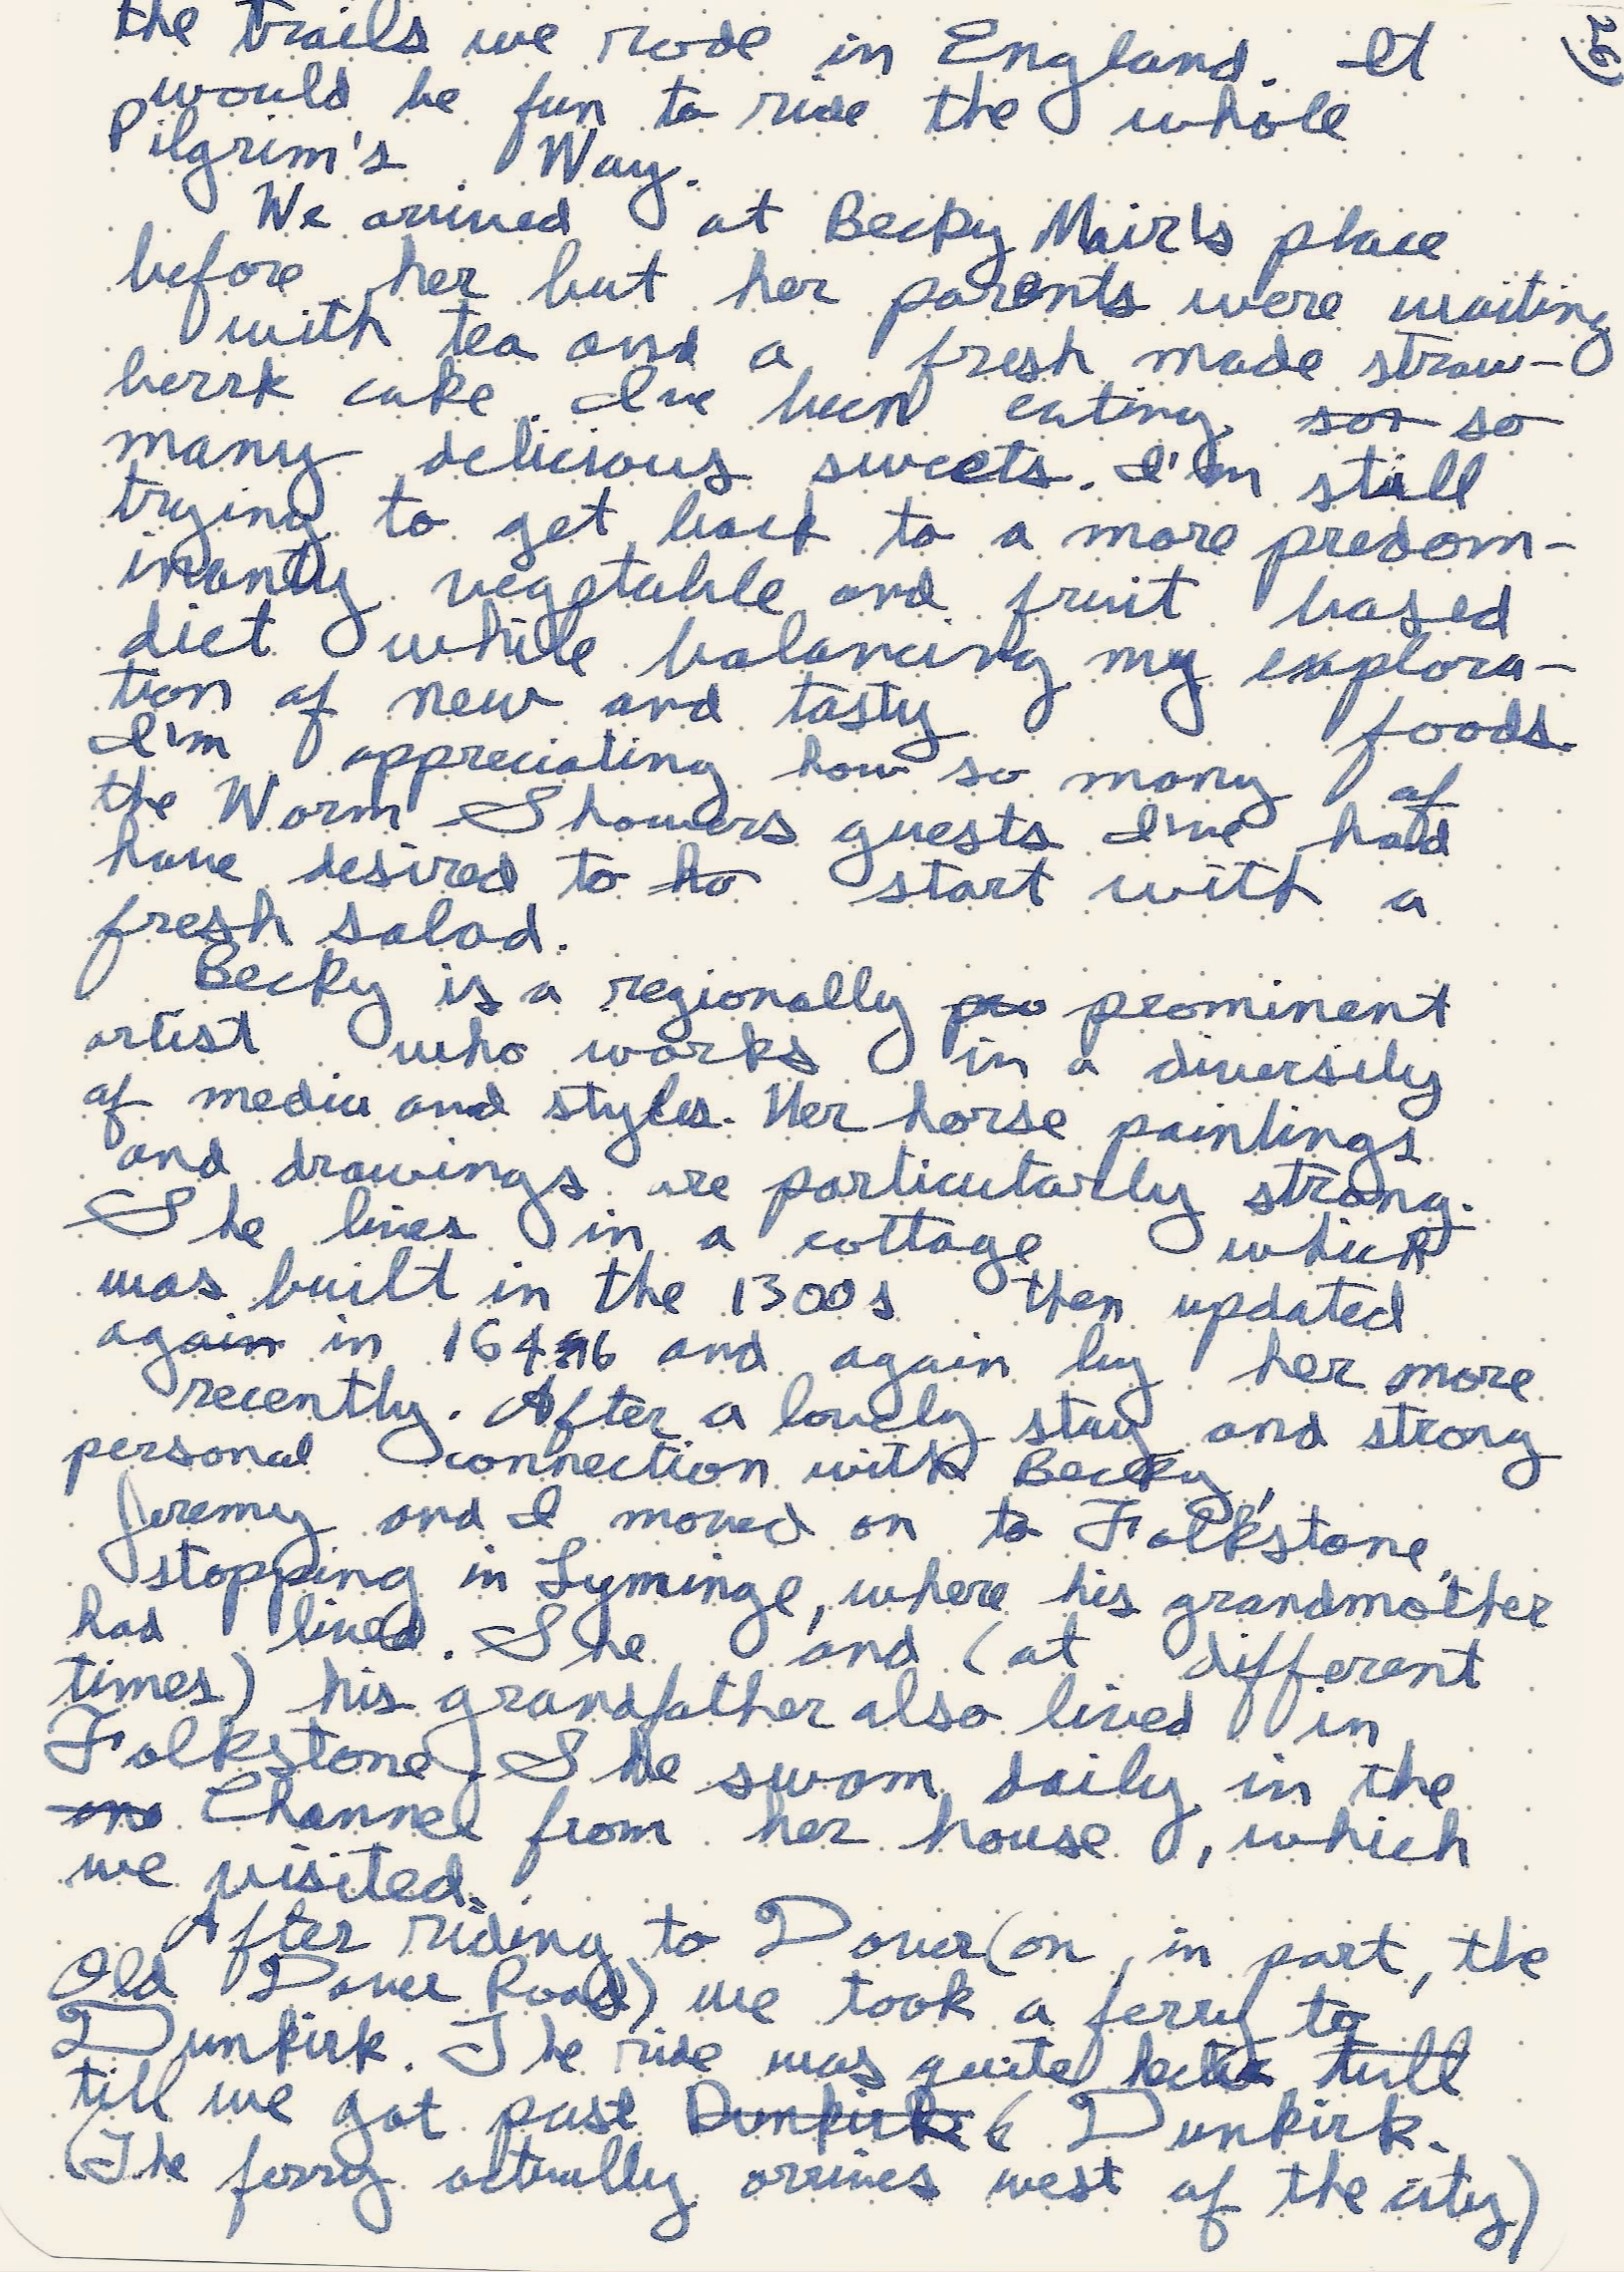 the trails we rode in England. It
would be fun to ride the whole
Pilgrim's Way.
We arrived at Becky Mair's place
before her but her parents were waiting
with tea and a fresh made straw-
berrk cake. I've been eating so
many delicious sweets. I'm still
trying to get back to a more predom-
inantly vegetable and fruit based
diet while balancing my explora-
tion of new and tasty foods.
I'm appreciating how so many of
the Warm Showers guests I've had
have desired to ho start with a
fresh salad.
Becky is a regionally pro prominent
artist who works in a diversity
of media and styles. Her horse paintings
and drawings are particularly strong.
She lives in a cottage which
was built in the 1300s then updated
again in and again by her more
recently. After a lovely stay and strong
personal connection with Becky,
Jeremy and I moved on to Folkstone,
stopping in Lyminge, where his grandmother
had lived. She and (at different
times) his grandfather also lived in
Folkstone. She swam daily in the
Channel from her house, which
we visited.
After riding to Dover (on, in part, the
Old Dover Road) we took a ferry to
Dunkirk. The ride was quite till
till we got past Dunkirk ( Dunkirk.
(The ferry actually arrives west of the city)